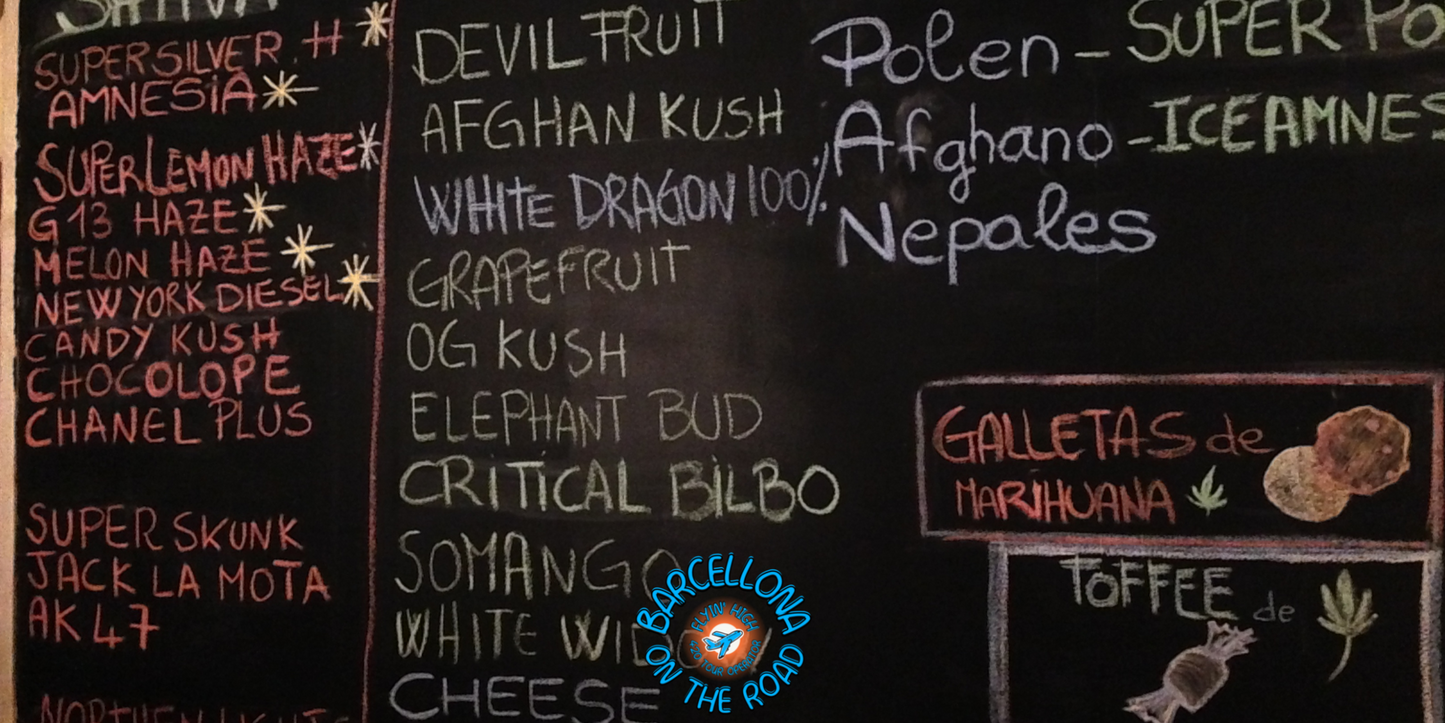 SATIVA
SUPERSILVER.H
AMNESIA
SUPERLEMON HAZE
G13 HAZE
MELON HAZE
NEW YORK DIESEL
CANDY KUSH
CHOCOLOPE
CHANEL PLUS
SUPER SKUNK
JACK LA MOTA
AK47
NORTHEN LIGHTS
DEVIL FRUIT
AFGHAN KUSH
WHITE DRAGON 100%
GRAPEFRUIT
OG KUSH
ELEPHANT BUD
CRITICAL BILBO
SOMANGO
WHITE WIDO
CHEESE
Polen - SUPER PO
Afghano - ICEAMNES
Nepales
GALLETAS de
MARIHUANA
TOFFEE de
BARCELLONA
FLYIN' HIGH
420 TOUR OPERATOR
ON THE ROAD